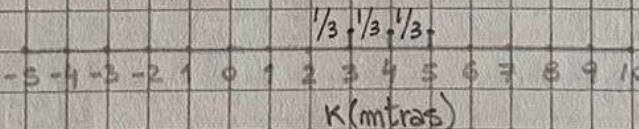 1/3 1/3 1/3
-5 -4 -3 -2 1 0 1 2 3 4 5 6 7 8 9 10
K(mtras)